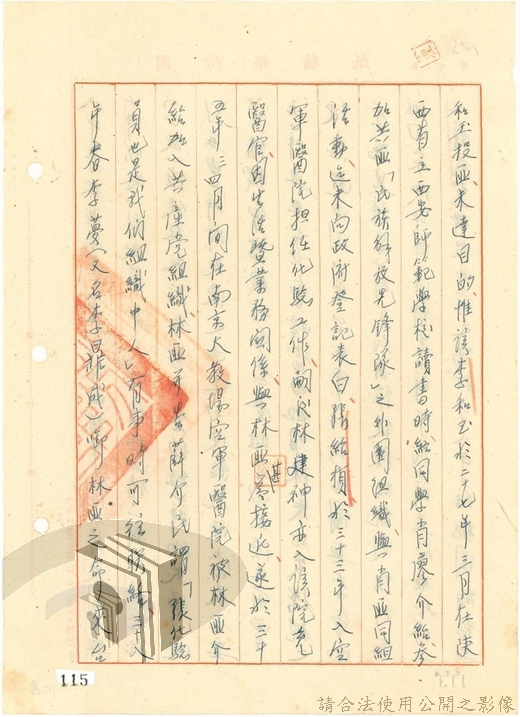 和玉投匪未達目的惟該李和玉於二十七年三月在陝
西省立西安師範學校讀書時經同學肖廖介紹參
加共匪「民族解放先鋒隊」之外圍組織與肖匪同組
活動迄未向政府登記表白張給楨於三十三年入空
軍醫院担任化驗工作嗣後林建神亦入該院充
醫官因生活暨業務関係與林匪甚為接近遂於三十
五年三四月间在南京大教場空軍醫院被林匪介
紹加入共產党組織林匪並告薛介民謂「張化驗
員也是我們組織中人」有事時可往聯絡三十八
年春李夢(又名李晨成)啣林匪之命來台
115
請合法使用公開之影像